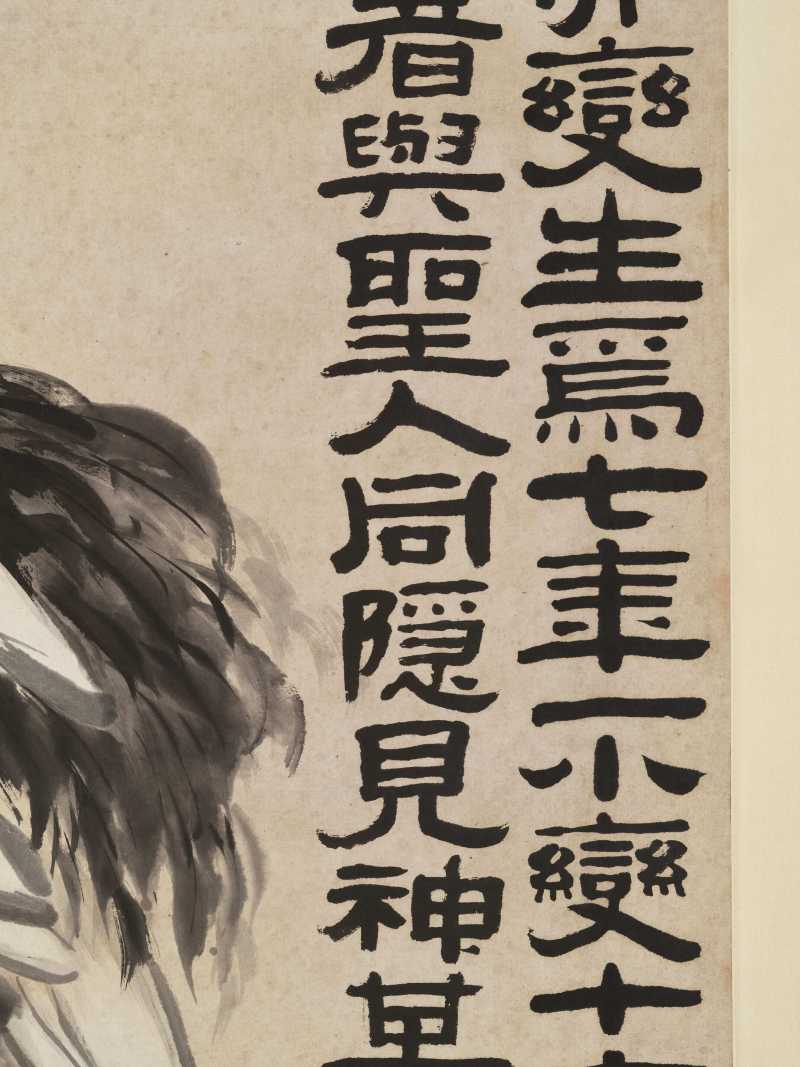 變生爲七年一小變十
者與聖人同隱見神